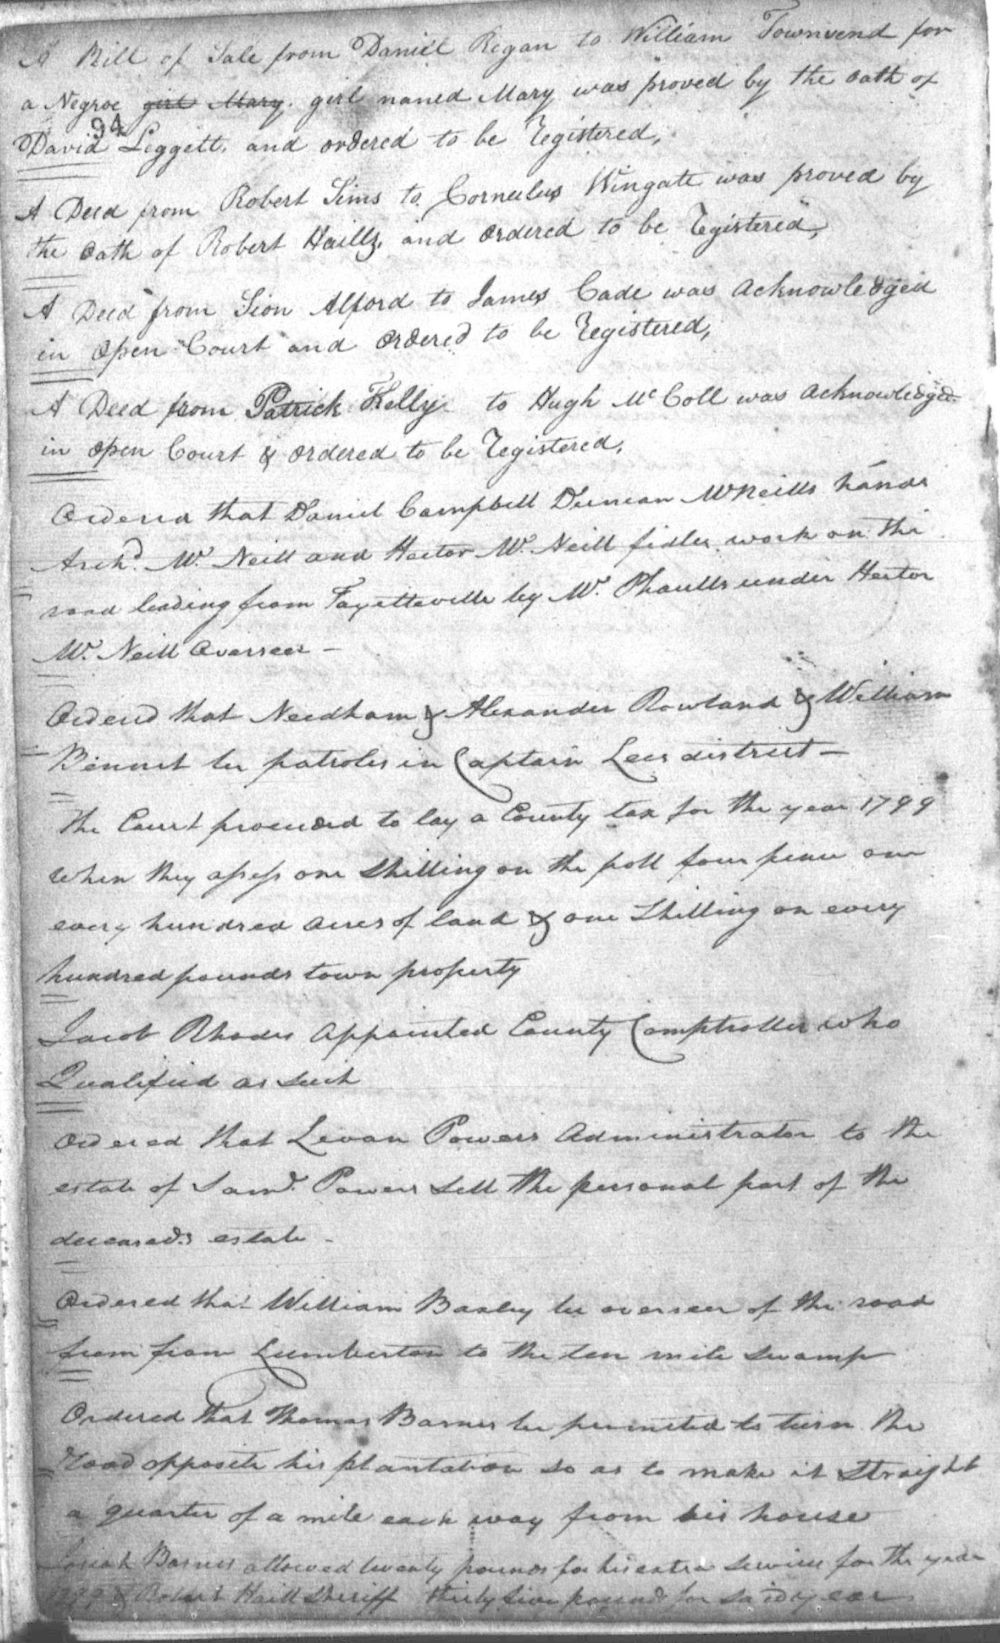 A Bill of Sale from Daniel Regan to William Townsend for
a Negroe girl Mary. girl named Mary was proved by the oath of
94
David Leggett, and ordered to be Registered,
A Deed from Robert Sims to Cornelus Wingate was proved by
the oath of Robert Hails, and ordered to be Registered,
A Deed from Sion Alford to James Cade was acknowledged
in open Court and ordered to be Registered,
A Deed from Patrick Kelly to Hugh McColl was acknowledged
in open Court & ordered to be Registered,
Ordered that Daniel Campbell Duncan McNeills hands
Archd. Mc. Neill and Hector Mc. Neill fidler work on the
road leading from Fayetteville by Mc. Phaulls under Hector
Mc. Neill Overseer –
Ordered that Needham & Alexander Rowland & William
Bennet be patroles in Captain Lees district –
The Court proceeded to lay a County tax for the year 1799
When they assess one Shilling on the poll four pence on
every hundred acres of land & one Shilling on every
hundred pounds town property
Jacob Rhodes appointed County Comptroller who
Qualified as such
Ordered that Levan Powers Administrator to the
estate of Saml. Powers sell the personal part of the
deceaseds estate –
Ordered that William Baxley be overseer of the road
from from Lumberton to the ten mile swamp
Ordered that Thomas Barnes be permited to turn the
Road opposite his plantation so as to make it straight
a quarter of a mile each way from his house
Josiah Barnes allowed twenty pounds for his extra services for the year
1799 & Robert Haill Sheriff thirty five pounds for said year